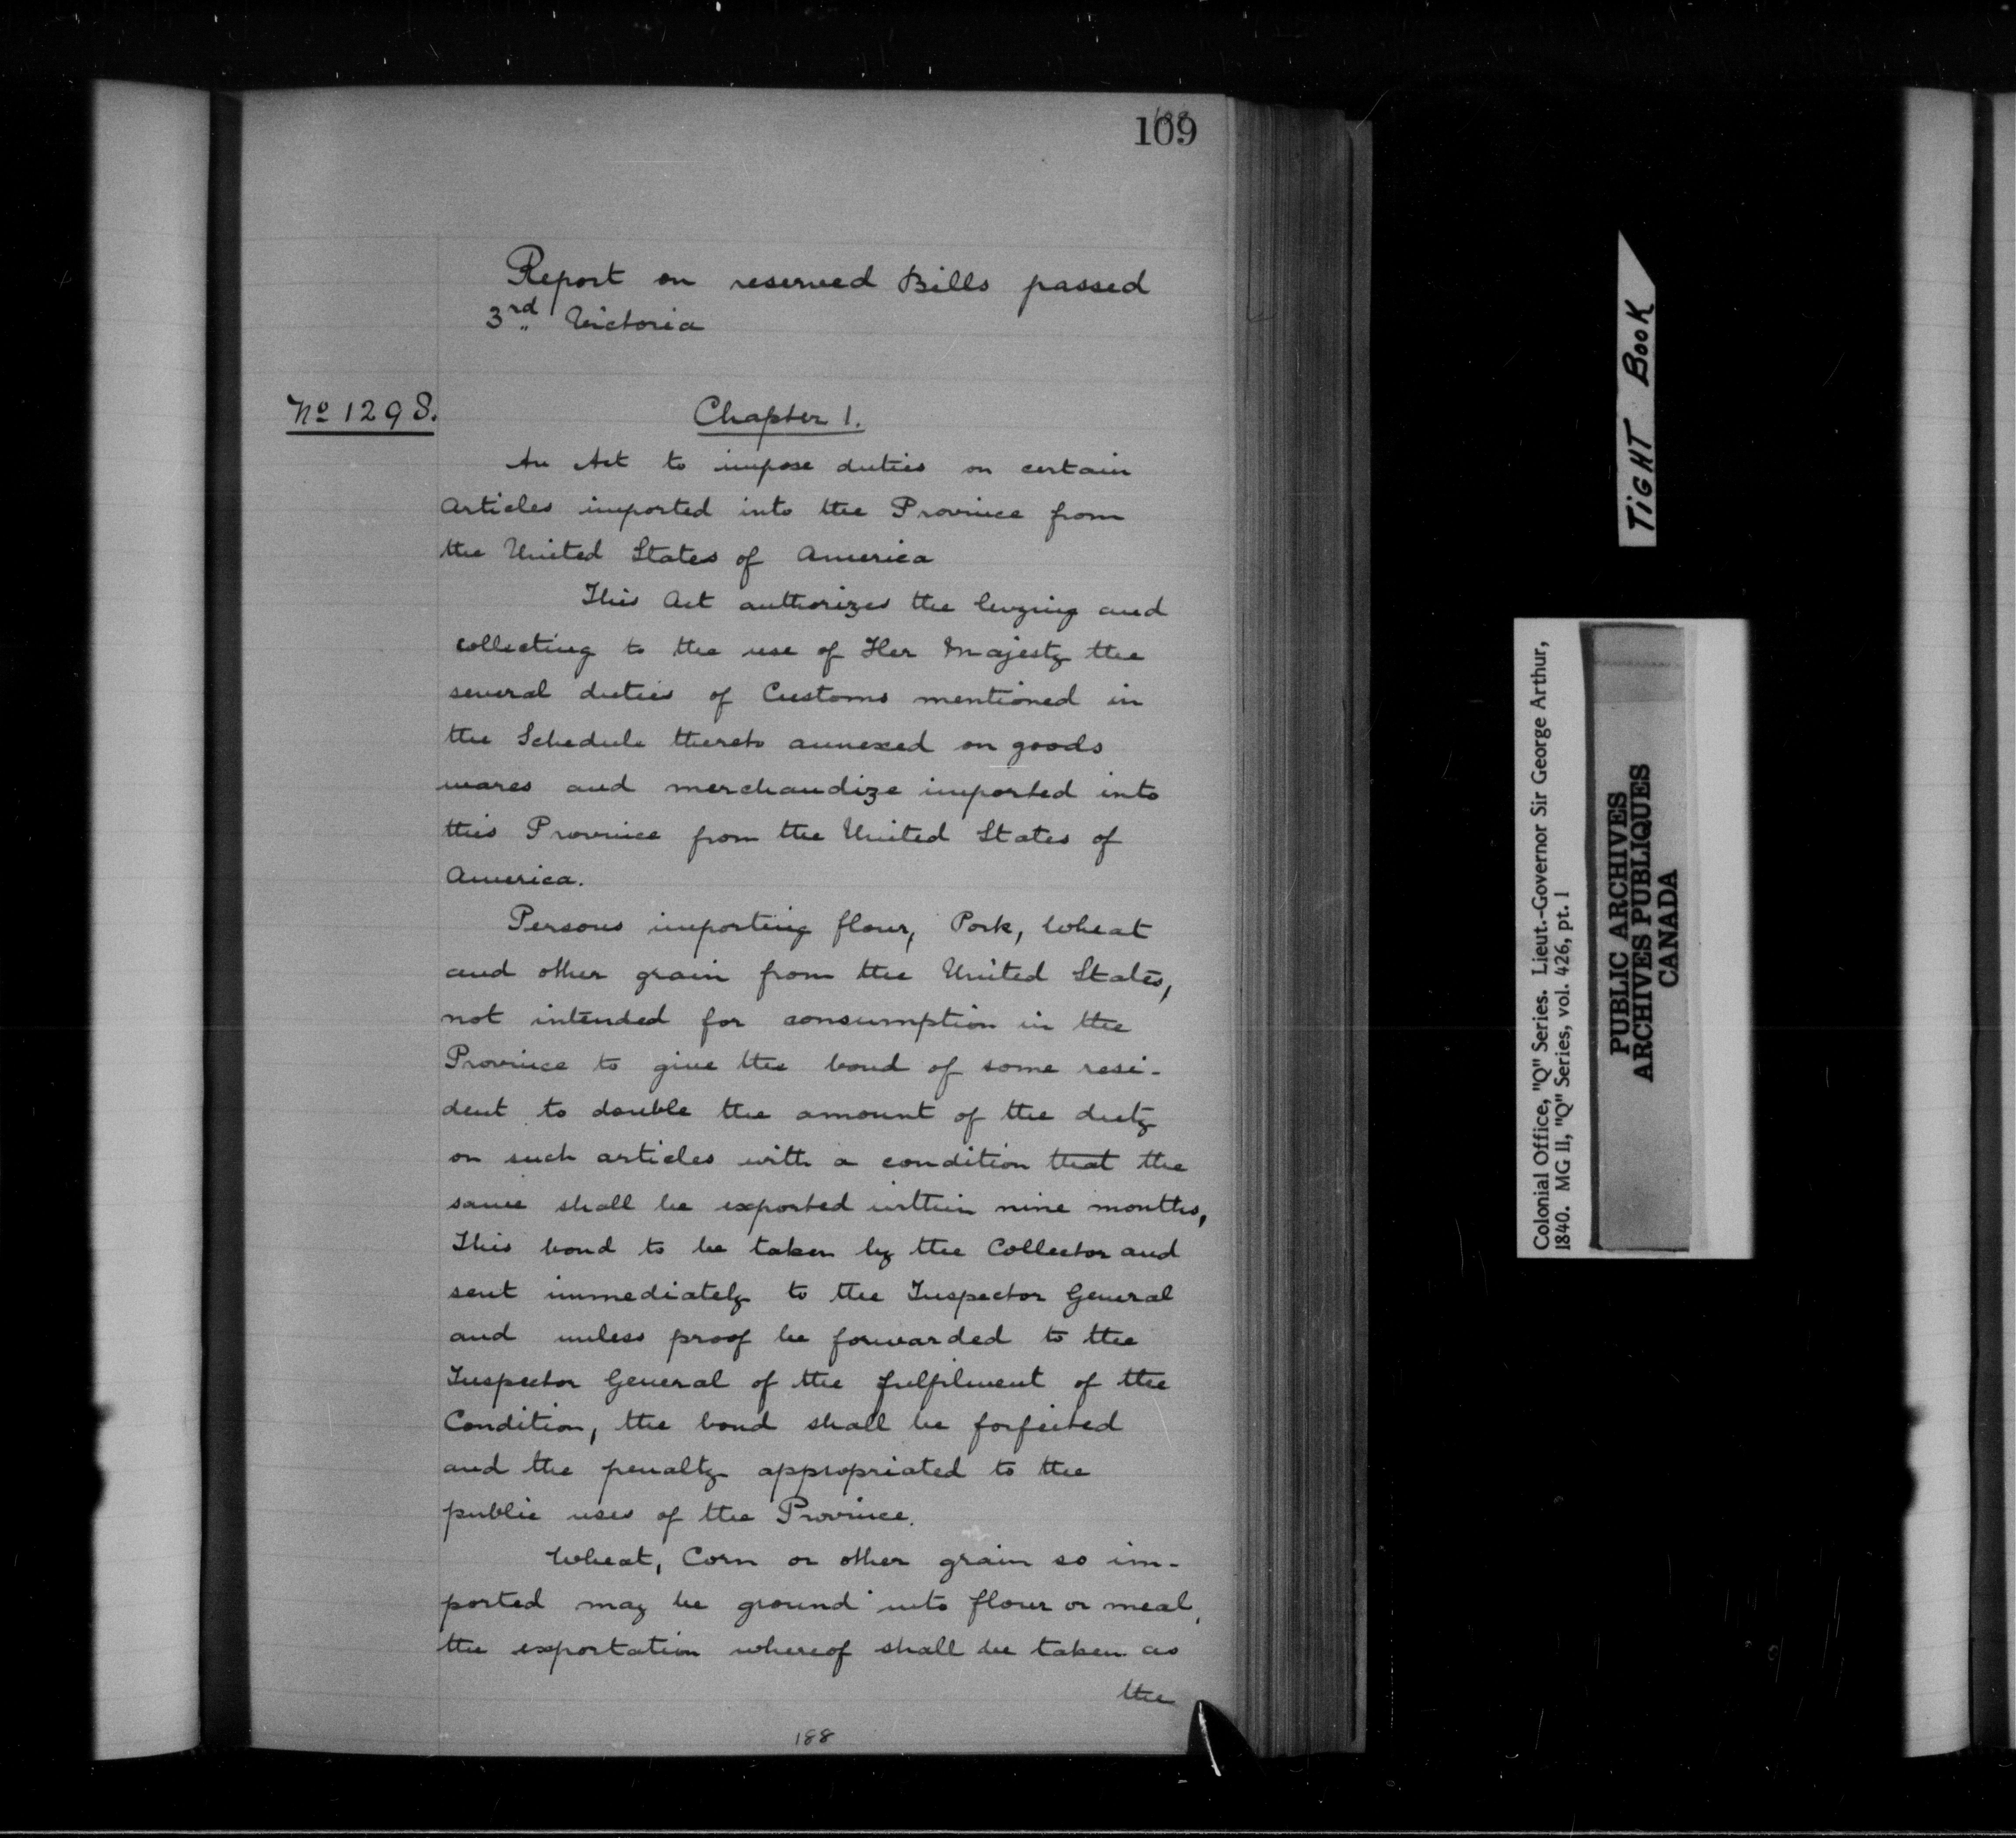 109
Report on reserved Bills passed
3rd Victoria
No 1298.
Chapter 1.
An Act to impose duties on certain
Articles imported into the Province from
the United States of America
This Act authorizes the levying and
collecting to the use of Her Majesty the
several duties of Customs mentioned in
the Schedule thereto annexed on goods
wares and merchandize imported into
this Province from the United States of
America.
Persons importing flour, Pork, Wheat
and other grain from the United States,
not intended for consumption in the
Province to give the bond of some resi-
dent to double the amount of the duty
on such articles with a condition that the
same shall be exported within nine months,
This bond to be taken by the Collector and
sent immediately to the Inspector General
and unless proof be forwarded to the
Inspector General of the fulfilment of the
Condition, the bond shall be forfeited
and the penalty appropriated to the
public uses of the Province.
Wheat, Corn or other grain so im-
ported may be ground into flour or meal,
the exportation whereof shall be taken as
the
188
TIGHT BOOK
Colonial Office, "Q" Series. Lieut.-Governor Sir George Arthur,
1840. MG 11, "Q" Series, vol. 426, pt. 1
PUBLIC ARCHIVES
ARCHIVES PUBLIQUES
CANADA